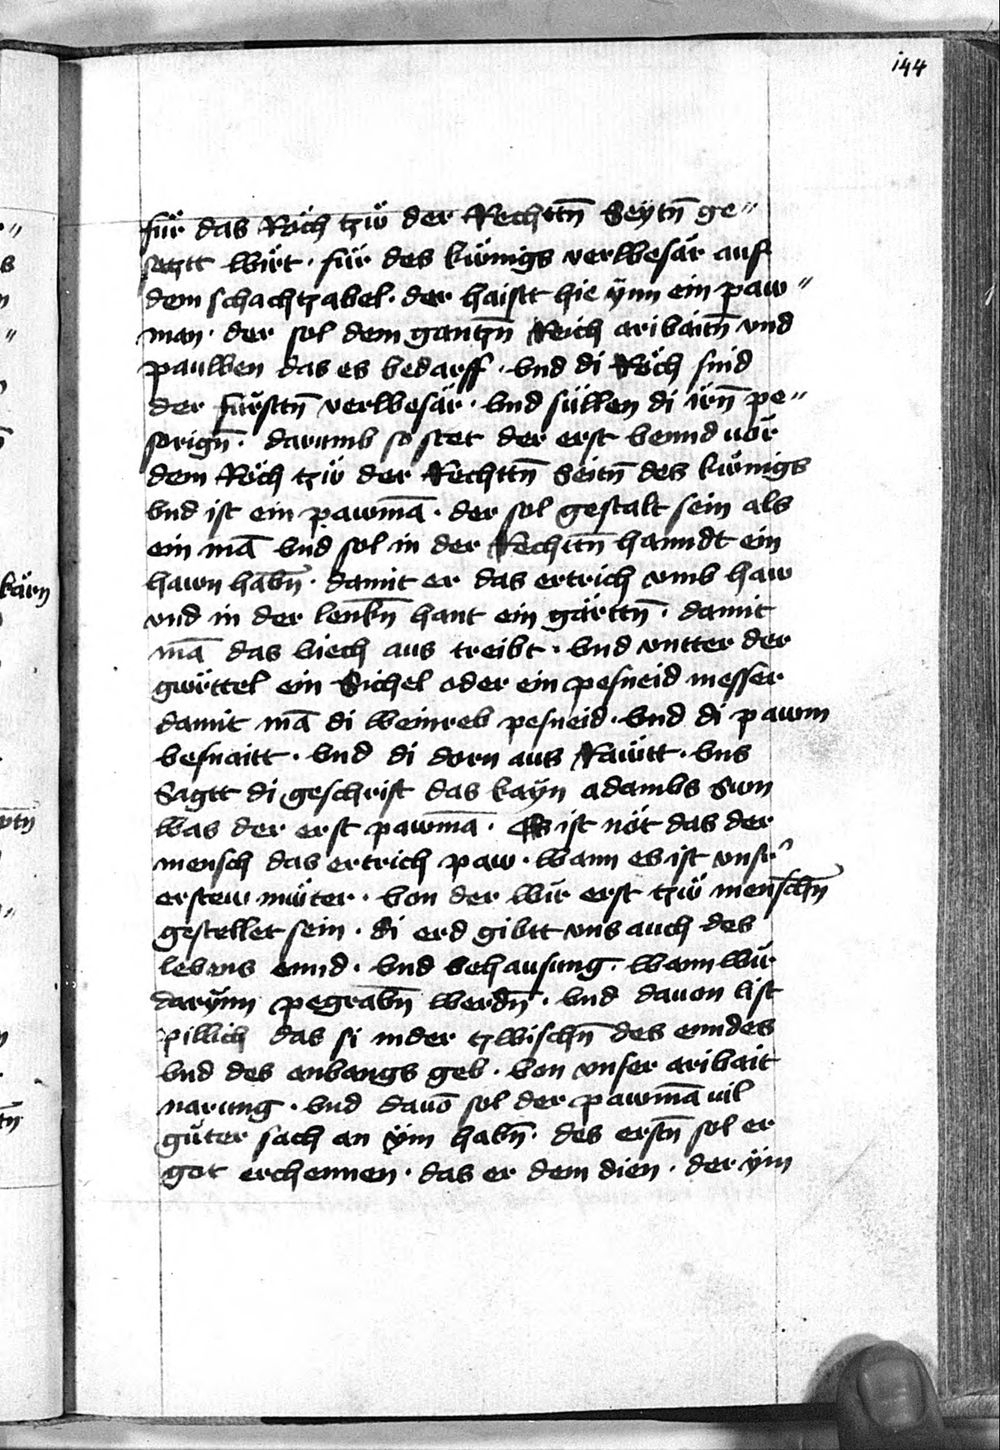 144
für das Röch tzů der Rechttn̄ Seytn̄ ge〃
setztt wirt · für des kůnigs verwesär auf
dem schachtzabel · der haistt hie ÿnn ein paw〃
man · der sol dem gantzn̄ Reich aribaitn̄ vnd
pauwen das es bedarff · vnd di Röch sind
der fürsttn̄ verwesär · vnd süllen di irn̄ pe〃
sorign̄ · darumb so stet der erst vennd vor
dem Röch tzů der Rechttn̄ Seitn̄ des kůnigs
vnd ist ein pawmā · der sol gestalt sein als
ein mā vnd sol in der Rechttn̄ hanndt ein
hawn habn̄ · damit er das ertrich vmb haw
vnd in der lenkn̄ hant ein gärttn̄ · damit
mā das viech aus treibt · vnd vntter der
gwrttel ein Sichel oder ein pesneid messer
damit mā di weinreb pesneid · vnd di pawm
besnaitt · vnd di dorn aus Räwtt · vns
Sagtt di geschrift das kayn adambs Sun
was der erst pawmā · Es ist nöt das der
mensch das ertrich paw · wann es ist vnsr̄
erstew můter · von der wir erst tzů menschn̄
gestellet sein · di erd gibtt vns auch des
lebens ennd · vnd behausung · wann wir
darÿnn pegrabn̄ werdn̄ · vnd dauon ist
pillich das si inder tzwischn̄ des enndes
vnd des anvangs geb · von vnser aribait
narung · vnd dauō sol der pawmā vil
gůter sach an ÿm habn̄ · des erstn̄ sol er
got erchennen · das er dem dien · der ÿm
kärn